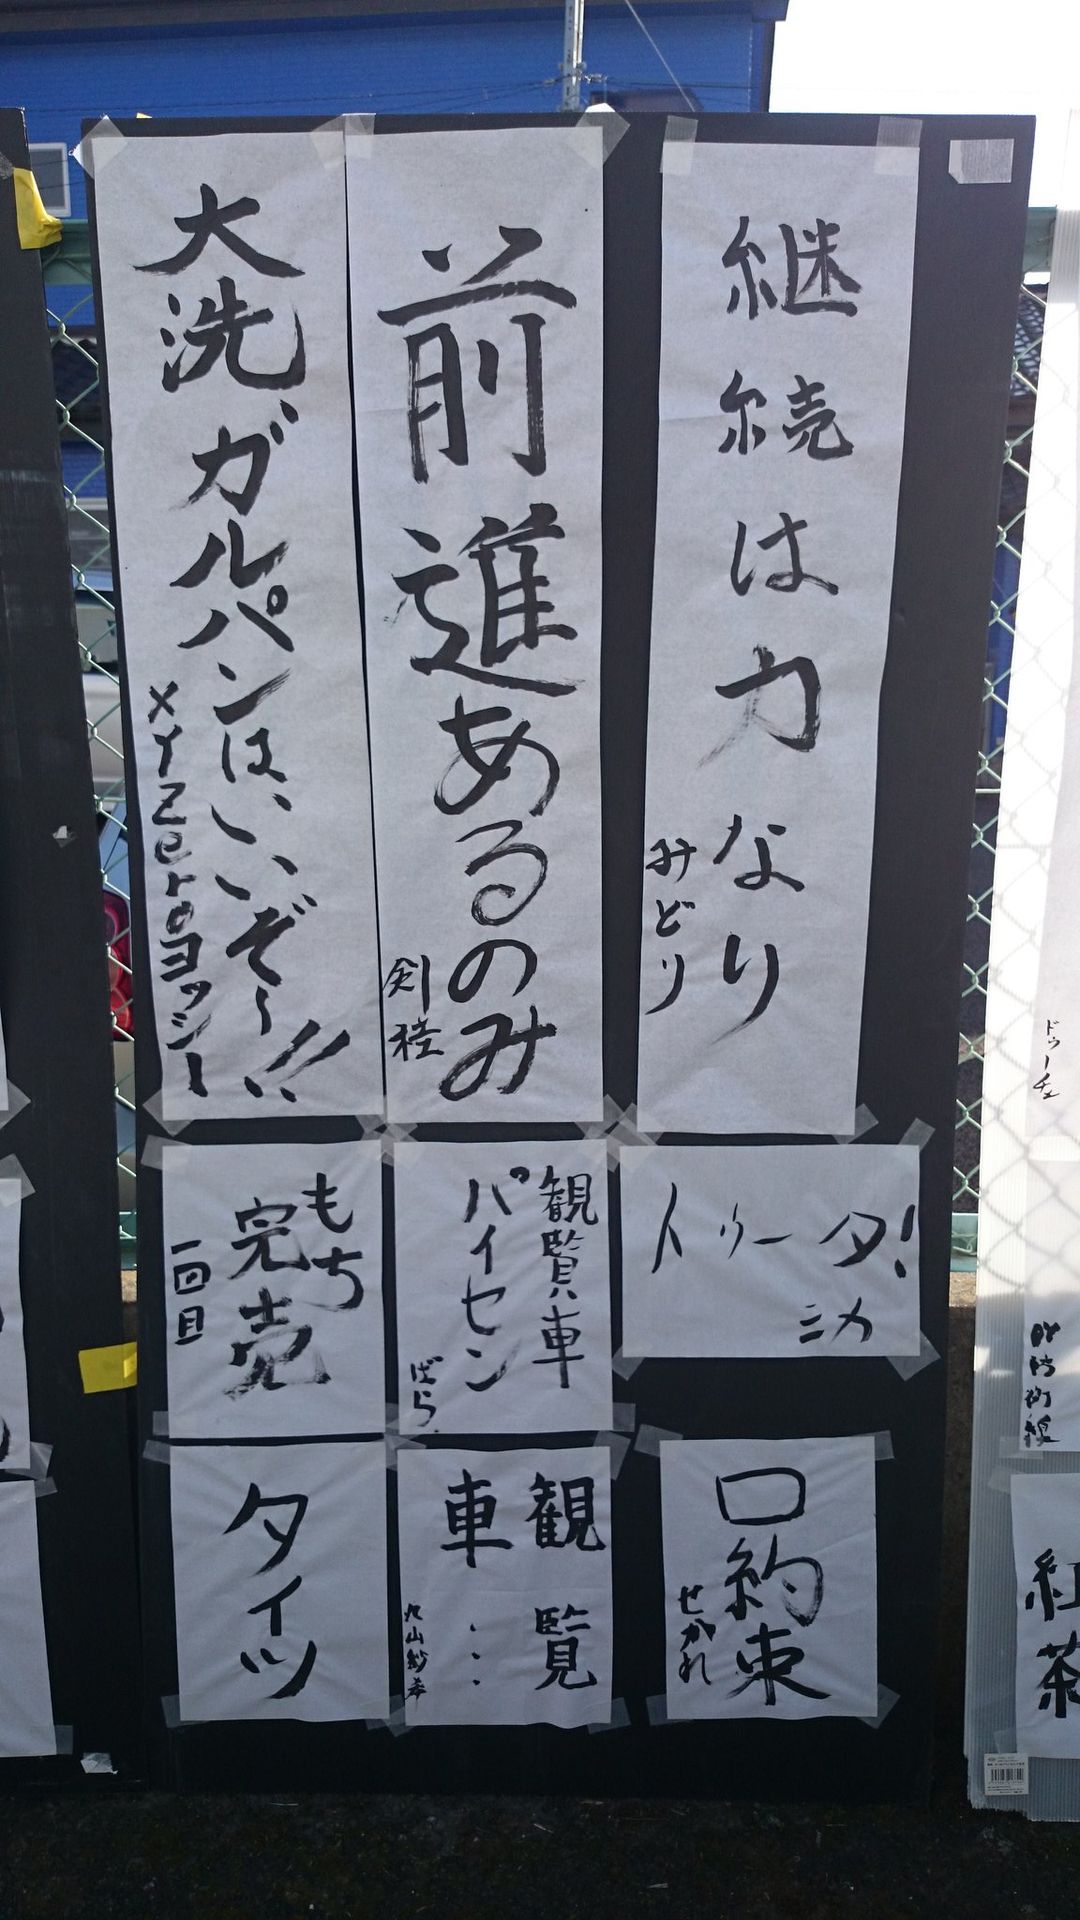 継続は力なり
みどり
前進あるのみ
剣
大洗、ガルパンはいいぞ〜!!
XYZeroヨッシー
トゥータ!
ミカ
観覧車
パイセン
ばら
もち
完売
一回目
口約束
せがれ
観覧
車…
丸山紗希
タイツ
ドゥーチェ
紅茶